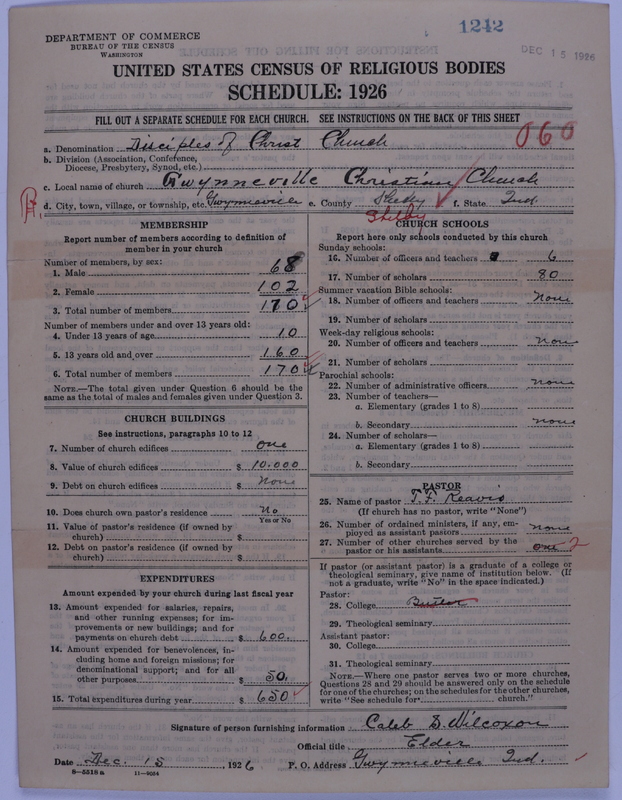 1242
DEC 15 1926
DEPARTMENT OF COMMERCE
BUREAU OF THE CENSUS
WASHINGTON
UNITED STATES CENSUS OF RELIGIOUS BODIES
SCHEDULE: 1926
FILL OUT A SEPARATE SCHEDULE FOR EACH CHURCH. SEE INSTRUCTIONS ON THE BACK OF THIS SHEET
060
a. Denomination Disciples of Christ Church
b. Division (Association, Conference,
Diocese, Presbytery, Synod, etc.)
c. Local name of church Gwynneville Christian Church
d. City, town, village, or township, etc. Gwynneville e. County Shelby f. State Ind.
Shelby
MEMBERSHIP
Report number of members according to definition of
member in your church
Number of members, by sex:
1. Male 68
2. Female 102
3. Total number of members 170
Number of members under and over 13 years old:
4. Under 13 years of age 10
5. 13 years old and over 160
6. Total number of members 170
NOTE.—The total given under Question 6 should be the
same as the total of males and females given under Question 3.
CHURCH BUILDINGS
See instructions, paragraphs 10 to 12
7. Number of church edifices one
8. Value of church edifices $ 10.000
9. Debt on church edifices $ None
10. Does church own pastor's residence No
Yes or No
11. Value of pastor's residence (if owned by
church) $
12. Debt on pastor's residence (if owned by
church) $
EXPENDITURES
Amount expended by your church during last fiscal year
13. Amount expended for salaries, repairs,
and other running expenses; for im-
provements or new buildings; and for
payments on church debt $ 600.
14. Amount expended for benevolences, in-
cluding home and foreign missions; for
denominational support; and for all
other purposes $ 50.
15. Total expenditures during year $ 650
CHURCH SCHOOLS
Report here only schools conducted by this church
Sunday schools:
16. Number of officers and teachers 6
17. Number of scholars 80
Summer vacation Bible schools:
18. Number of officers and teachers None
19. Number of scholars
Week-day religious schools:
20. Number of officers and teachers none
21. Number of scholars
Parochial schools:
22. Number of administrative officers none
23. Number of teachers—
a. Elementary (grades 1 to 8)
b. Secondary none
24. Number of scholars—
a. Elementary (grades 1 to 8)
b. Secondary
PASTOR
25. Name of pastor T. F. Reavis
(If church has no pastor, write "None")
26. Number of ordained ministers, if any, em-
ployed as assistant pastors none
27. Number of other churches served by the
pastor or his assistants one 2
If pastor (or assistant pastor) is a graduate of a college or
theological seminary, give name of institution below. (If
not a graduate, write "No" in the space indicated.)
Pastor:
28. College Butler
29. Theological seminary
Assistant pastor:
30. College
31. Theological seminary
NOTE.—Where one pastor serves two or more churches,
Questions 28 and 29 should be answered only on the schedule
for one of the churches; on the schedules for the other churches,
write "See schedule for church."
Signature of person furnishing information Caleb D. Wilcoxon
Official title Elder
Date Dec. 15, 1926 P. O. Address Gwynneville Ind.
8—5518 a 11—9064